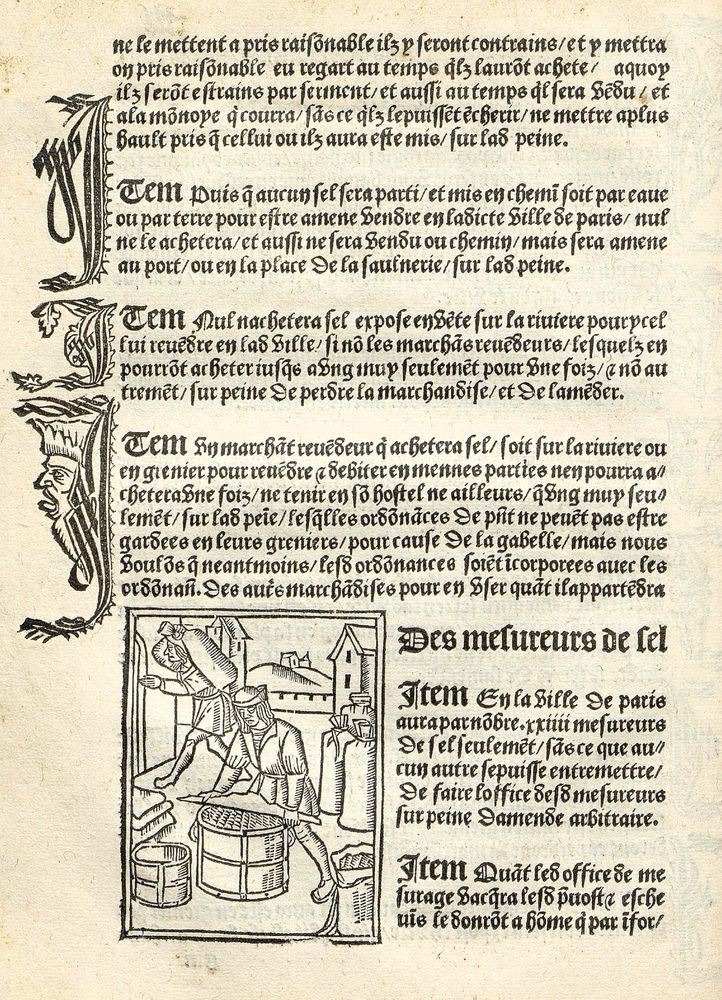 ne le mettent a pris raisõnable ilz y seront contrains/ et y mettra
on pris raisõnable eu regart au temps q̃lz laurõt achete/ aquoy
ilz serõt estrains par serment/ et aussi au temps q̃l sera vẽdu/ et
a la mõnoye q̃ courra/ sãs ce q̃lz le puissẽt ẽcherir/ ne mettre a plus
hault pris q̃ cellui ou ilz aura este mis/ sur lad peine.
ITem Puis q̃ aucun sel sera parti/ et mis en chemĩ soit par eaue
ou par terre pour estre amene vendre en ladicte ville de paris/ nul
ne le achetera/ et aussi ne sera vendu ou chemin/ mais sera amene
au port/ ou en la place de la saulnerie/ sur lad peine.
ITem Nul nachetera sel expose en vẽte sur la riviere pour ycel
lui revẽdre en lad ville/ si nõ les marchãs revẽdeurs/ lesquelz en
pourrõt acheter iusq̃s a vng muy seulemẽt pour vne foiz/ ⁊ nõ au
tremẽt/ sur peine de perdre la marchandise/ et de lamẽder.
ITem vn marchãt revẽdeur q̃ achetera sel/ soit sur la riviere ou
en grenier pour revẽdre ⁊ debiter en mennes parties nen pourra a/
cheter a vne foiz/ ne tenir en sõ hostel ne ailleurs/ q̃ vng muy seu/
lemẽt/ sur lad peĩe/ lesq̃lles ordõnãces de pñt ne peuẽt pas estre
gardees en leurs greniers/ pour cause de la gabelle/ mais nous
voulõs q̃ neantmoins/ lesd ordõnances soiẽt ĩcorporees avec les
ordõnañ. des autr̃s marchãdises pour en vser quãt il appartẽdra
Des mesureurs de sel
Item En la ville de paris
aura par nõbre .xxiiii mesureurs
de sel seulemẽt/ sãs ce que au/
cun autre se puisse entremettre/
de faire loffice desd mesureurs
sur peine damende arbitraire.
Item Quãt led office de me
surage vacq̃ra lesd p̃uost ⁊ esche
vĩs le donrõt a hõme q̃ par ĩfor/